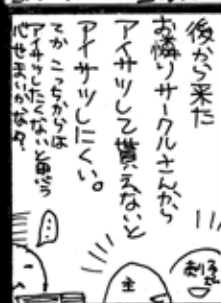 後から来た
お隣りサークルさんから
アイサツして貰えないと
アイサツしにくい。
てか こっちからは
アイサツしたくないと思う
心せまいかな？
…
主